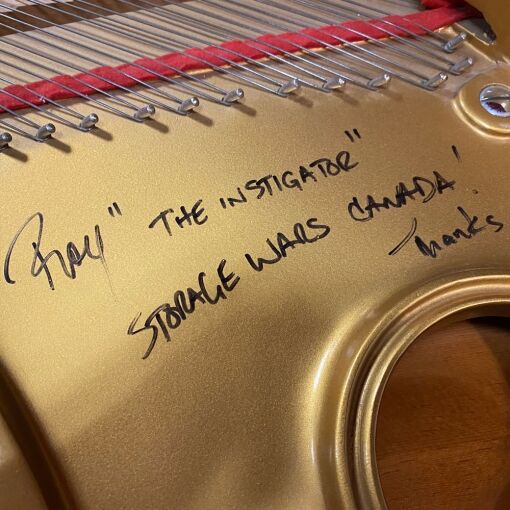 Roy "THE INSTIGATOR"
STORAGE WARS CANADA!
Thanks